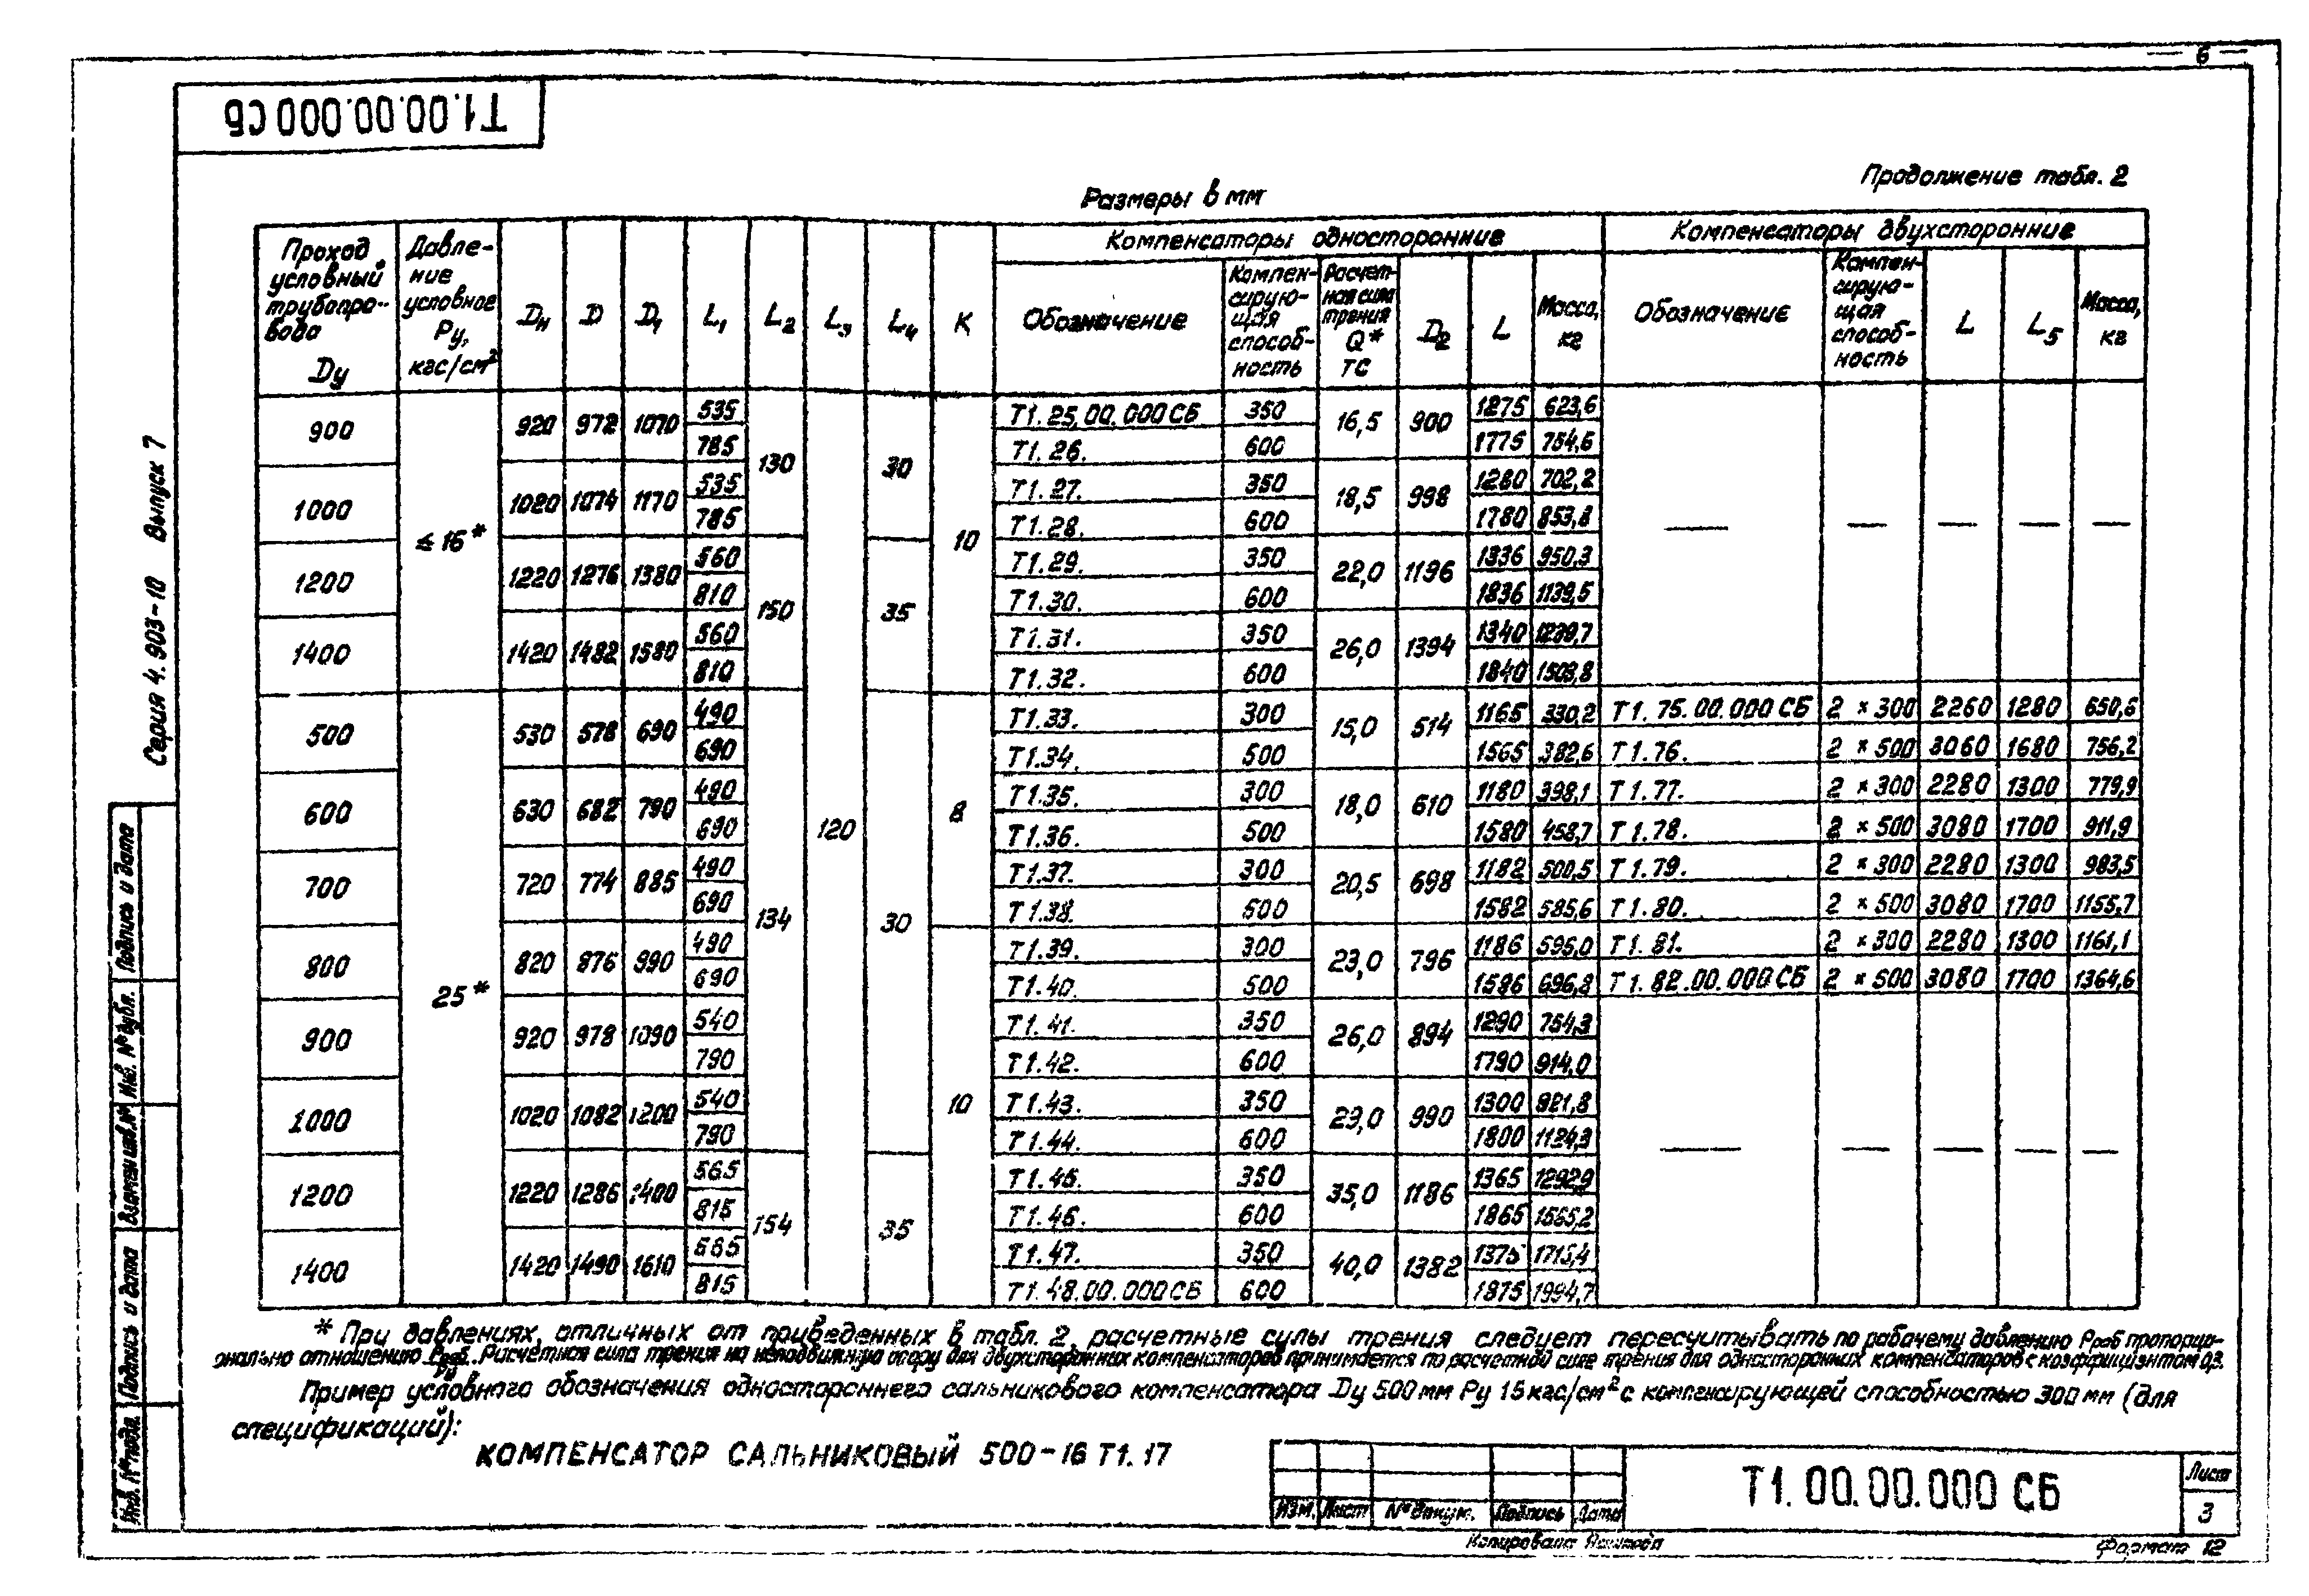 6
Т1.00.00.000 СБ
Продолжение табл. 2
Размеры в мм
Проход условный трубопровода Dу
Давление условное Ру, кгс/см²
Dн D D₁ L₁ L₂ L₃ L₄ К
Компенсаторы односторонние
Компенсаторы двухсторонние
Обозначение Компенсирующая способность Расчетная сила трения Q* ТС D₂ L Масса, кг
Обозначение Компенсирующая способность L L₅ Масса, кг
900 ≤ 16* 920 972 1070 535 130 120 30 10 Т1.25.00.000 СБ 350 16,5 900 1275 623,6 — — — — —
785 Т1.26. 600 1775 754,6
1000 1020 1074 1170 535 Т1.27. 350 18,5 998 1280 702,2
785 Т1.28. 600 1780 853,8
1200 1220 1276 1380 560 150 35 Т1.29. 350 22,0 1196 1336 950,3
810 Т1.30. 600 1836 1139,5
1400 1420 1482 1580 560 Т1.31. 350 26,0 1394 1340 1239,7
810 Т1.32. 600 1840 1503,8
500 25* 530 578 690 490 134 30 8 Т1.33. 300 15,0 514 1165 330,2 Т1.75.00.000 СБ 2 × 300 2260 1280 650,6
690 Т1.34. 500 1565 382,6 Т1.76. 2 × 500 3060 1680 756,2
600 630 682 790 490 Т1.35. 300 18,0 610 1180 398,1 Т1.77. 2 × 300 2280 1300 779,9
690 Т1.36. 500 1580 458,7 Т1.78. 2 × 500 3080 1700 911,9
700 720 774 885 490 Т1.37. 300 20,5 698 1182 500,5 Т1.79. 2 × 300 2280 1300 983,5
690 Т1.38. 500 1582 585,6 Т1.80. 2 × 500 3080 1700 1155,7
800 820 876 990 490 10 Т1.39. 300 23,0 796 1186 595,0 Т1.81. 2 × 300 2280 1300 1161,1
690 Т1.40. 500 1586 696,8 Т1.82.00.000 СБ 2 × 500 3080 1700 1364,6
900 920 978 1090 540 Т1.41. 350 26,0 894 1290 754,3 — — — — —
790 Т1.42. 600 1790 914,0
1000 1020 1082 1200 540 Т1.43. 350 29,0 990 1300 921,8
790 Т1.44. 600 1800 1124,3
1200 1220 1286 1400 565 154 35 Т1.45. 350 35,0 1186 1365 1292,9
815 Т1.46. 600 1865 1565,2
1400 1420 1490 1610 565 Т1.47. 350 40,0 1382 1375 1715,4
815 Т1.48.00.000 СБ 600 1875 1994,7
* При давлениях, отличных от приведенных в табл. 2, расчетные силы трения следует пересчитывать по рабочему давлению Рраб пропорци-
онально отношению Рраб/Ру. Расчетная сила трения на неподвижную опору для двухсторонних компенсаторов принимается по расчетной силе трения для односторонних компенсаторов с коэффициентом 0,3.
Пример условного обозначения одностороннего сальникового компенсатора Dу 500 мм Ру 16 кгс/см² с компенсирующей способностью 300 мм (для
спецификаций):
КОМПЕНСАТОР САЛЬНИКОВЫЙ 500-16 Т1.17
Изм. Лист № докум. Подпись Дата
Т1.00.00.000 СБ
Лист
3
Копировала
Формат 12
Серия 4.903-10 Выпуск 7
Подпись и дата
Инв. № дубл.
Взамен инв. №
Подпись и дата
Инв. № подл.